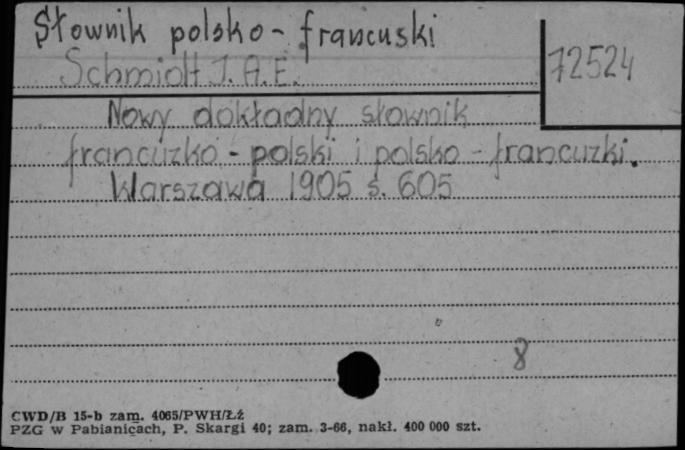 Słownik polsko - francuski
72524
Schmidt J. A. E.
Nowy dokładny słownik
francuzko - polski i polsko - francuzki.
Warszawa 1905 s. 605
8
CWD/B 15-b zam. 4065/PWH/Łź
PZG w Pabianicach, P. Skargi 40; zam. 3-66, nakł. 400 000 szt.